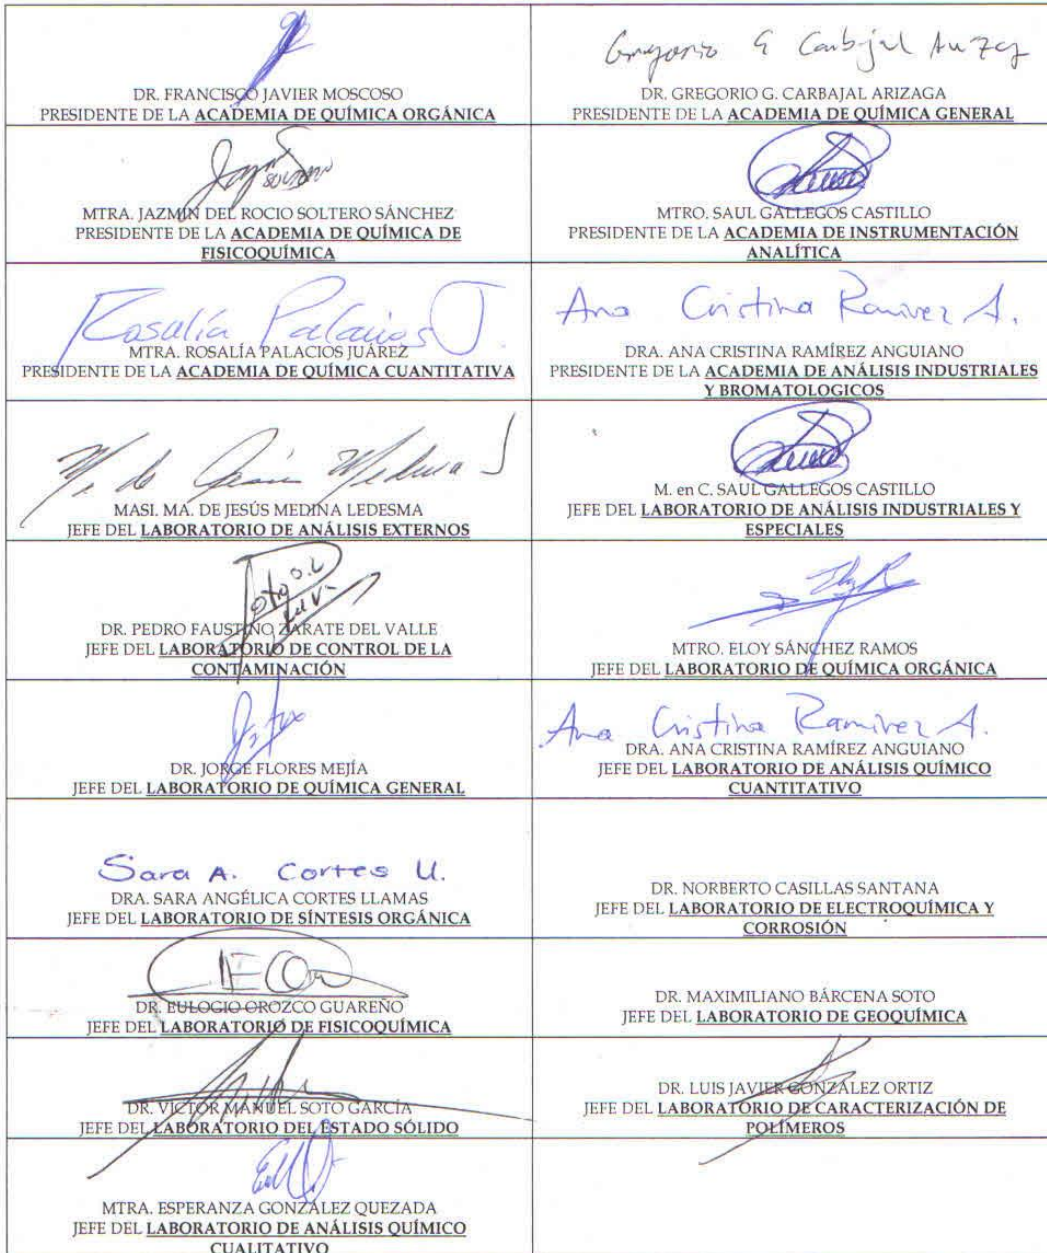 Gregorio G Carbajal
DR. FRANCISCO JAVIER MOSCOSO
PRESIDENTE DE LA ACADEMIA DE QUÍMICA ORGÁNICA
DR. GREGORIO G. CARBAJAL ARIZAGA
PRESIDENTE DE LA ACADEMIA DE QUÍMICA GENERAL
MTRA. JAZMÍN DEL ROCIO SOLTERO SÁNCHEZ
PRESIDENTE DE LA ACADEMIA DE QUÍMICA DE
FISICOQUÍMICA
MTRO. SAUL GALLEGOS CASTILLO
PRESIDENTE DE LA ACADEMIA DE INSTRUMENTACIÓN
ANALÍTICA
Rosalía Palacios J.
MTRA. ROSALÍA PALACIOS JUÁREZ
PRESIDENTE DE LA ACADEMIA DE QUÍMICA CUANTITATIVA
Ana Cristina Ramirez A.
DRA. ANA CRISTINA RAMÍREZ ANGUIANO
PRESIDENTE DE LA ACADEMIA DE ANÁLISIS INDUSTRIALES
Y BROMATOLOGICOS
MASI. MA. DE JESÚS MEDINA LEDESMA
JEFE DEL LABORATORIO DE ANÁLISIS EXTERNOS
M. en C. SAUL GALLEGOS CASTILLO
JEFE DEL LABORATORIO DE ANÁLISIS INDUSTRIALES Y
ESPECIALES
DR. PEDRO FAUSTINO ZARATE DEL VALLE
JEFE DEL LABORATORIO DE CONTROL DE LA
CONTAMINACIÓN
MTRO. ELOY SÁNCHEZ RAMOS
JEFE DEL LABORATORIO DE QUÍMICA ORGÁNICA
DR. JORGE FLORES MEJÍA
JEFE DEL LABORATORIO DE QUÍMICA GENERAL
Ana Cristina Ramirez A.
DRA. ANA CRISTINA RAMÍREZ ANGUIANO
JEFE DEL LABORATORIO DE ANÁLISIS QUÍMICO
CUANTITATIVO
Sara A. Cortes Ll.
DRA. SARA ANGÉLICA CORTES LLAMAS
JEFE DEL LABORATORIO DE SÍNTESIS ORGÁNICA
DR. NORBERTO CASILLAS SANTANA
JEFE DEL LABORATORIO DE ELECTROQUÍMICA Y
CORROSIÓN
DR. EULOGIO OROZCO GUAREÑO
JEFE DEL LABORATORIO DE FISICOQUÍMICA
DR. MAXIMILIANO BÁRCENA SOTO
JEFE DEL LABORATORIO DE GEOQUÍMICA
DR. VICTOR MANUEL SOTO GARCÍA
JEFE DEL LABORATORIO DEL ESTADO SÓLIDO
DR. LUIS JAVIER GONZÁLEZ ORTIZ
JEFE DEL LABORATORIO DE CARACTERIZACIÓN DE
POLÍMEROS
MTRA. ESPERANZA GONZÁLEZ QUEZADA
JEFE DEL LABORATORIO DE ANÁLISIS QUÍMICO
CUALITATIVO